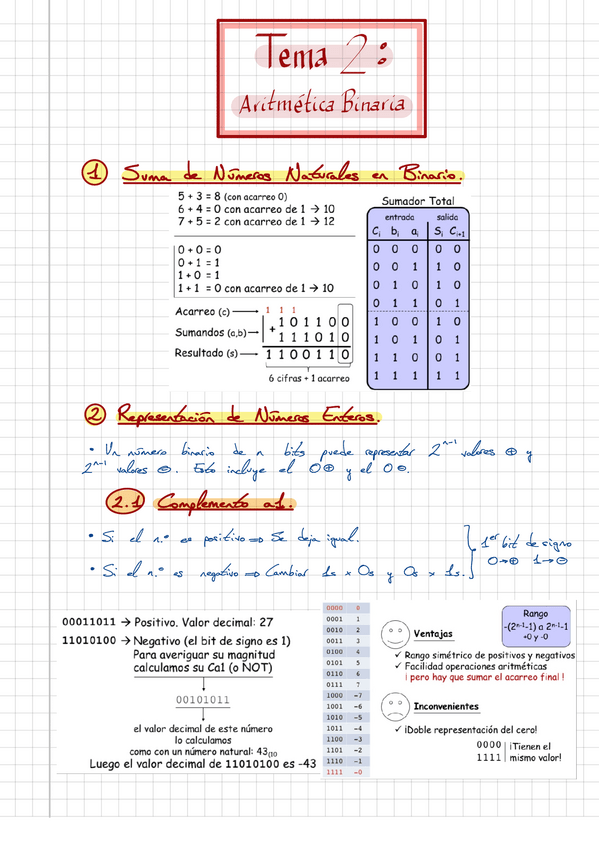 Tema 2:
Aritmética Binaria
1 Suma de Números Naturales en Binario.
5 + 3 = 8 (con acarreo 0)
6 + 4 = 0 con acarreo de 1 → 10
7 + 5 = 2 con acarreo de 1 → 12
0 + 0 = 0
0 + 1 = 1
1 + 0 = 1
1 + 1 = 0 con acarreo de 1 → 10
Acarreo (c) → 1 1 1
Sumandos (a,b) → + 1 0 1 1 0 0
1 1 1 0 1 0
Resultado (s) → 1 1 0 0 1 1 0
6 cifras + 1 acarreo
Sumador Total
entrada salida
Ci bi ai Si Ci+1
0 0 0 0 0
0 0 1 1 0
0 1 0 1 0
0 1 1 0 1
1 0 0 1 0
1 0 1 0 1
1 1 0 0 1
1 1 1 1 1
2 Representación de Números Enteros.
• Un número binario de n bits puede representar 2^n-1 valores ⊕ y
2^n-1 valores ⊖. Esto incluye el 0⊕ y el 0⊖.
2.1 Complemento a1.
• Si el n.º es positivo ⇒ Se deja igual.
• Si el n.º es negativo ⇒ Cambiar 1s x 0s y 0s x 1s.
1er bit de signo
0→⊕ 1→⊖
00011011 → Positivo. Valor decimal: 27
11010100 → Negativo (el bit de signo es 1)
Para averiguar su magnitud
calculamos su Ca1 (o NOT)
00101011
el valor decimal de este número
lo calculamos
como con un número natural: 43(10
Luego el valor decimal de 11010100 es -43
0000 0
0001 1
0010 2
0011 3
0100 4
0101 5
0110 6
0111 7
1000 -7
1001 -6
1010 -5
1011 -4
1100 -3
1101 -2
1110 -1
1111 -0
Rango
-(2^n-1-1) a 2^n-1-1
+0 y -0
Ventajas
✓ Rango simétrico de positivos y negativos
✓ Facilidad operaciones aritméticas
¡ pero hay que sumar el acarreo final !
Inconvenientes
✓ ¡Doble representación del cero!
0000 ¡Tienen el
1111 mismo valor!